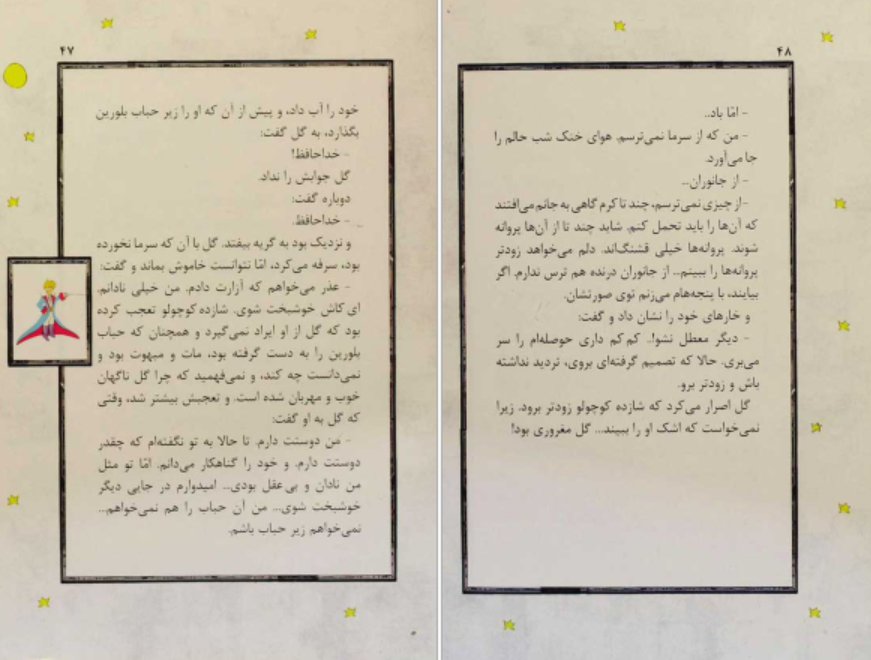 ۴۷
خود را آب داد، و پیش از آن که او را زیر حباب بلورین
بگذارد، به گل گفت:
- خداحافظ!
گل جوابش را نداد.
دوباره گفت:
- خداحافظ.
و نزدیک بود به گریه بیفتد. گل با آن که سرما نخورده
بود، سرفه می‌کرد، امّا نتوانست خاموش بماند و گفت:
- عذر می‌خواهم که آزارت دادم. من خیلی نادانم.
ای کاش خوشبخت شوی. شازده کوچولو تعجب کرده
بود که گل از او ایراد نمی‌گیرد و همچنان که حباب
بلورین را به دست گرفته بود، مات و مبهوت بود و
نمی‌دانست چه کند، و نمی‌فهمید که چرا گل ناگهان
خوب و مهربان شده است. و تعجبش بیشتر شد، وقتی
که گل به او گفت:
- من دوستت دارم. تا حالا به تو نگفته‌ام که چقدر
دوستت دارم. و خود را گناهکار می‌دانم. امّا تو مثل
من نادان و بی‌عقل بودی... امیدوارم در جایی دیگر
خوشبخت شوی... من آن حباب را هم نمی‌خواهم...
نمی‌خواهم زیر حباب باشم.
۴۸
- امّا باد..
- من که از سرما نمی‌ترسم. هوای خنک شب حالم را
جا می‌آورد.
- از جانوران...
- از چیزی نمی‌ترسم، چند تا کرم گاهی به جانم می‌افتند
که آن‌ها را باید تحمل کنم. شاید چند تا از آن‌ها پروانه
شوند. پروانه‌ها خیلی قشنگ‌اند. دلم می‌خواهد زودتر
پروانه‌ها را ببینم.. از جانوران درنده هم ترس ندارم. اگر
بیایند، با پنجه‌هام می‌زنم توی صورتشان.
و خارهای خود را نشان داد و گفت:
- دیگر معطل نشو!.. کم‌کم داری حوصله‌ام را سر
می‌بری. حالا که تصمیم گرفته‌ای بروی، تردید نداشته
باش و زودتر برو.
گل اصرار می‌کرد که شازده کوچولو زودتر برود. زیرا
نمی‌خواست که اشک او را ببیند... گل مغروری بود!